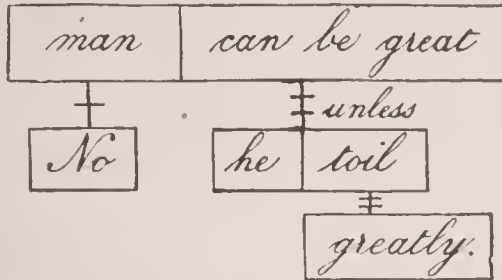 man can be great
unless
No he toil
greatly.